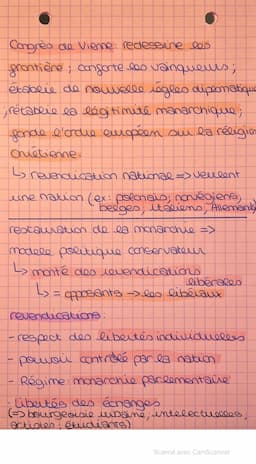 Congrès de Vienne: redessine les
frontière ; conforte les vainqueurs ;
établie de nouvelle règles diplomatique
; rétablie la légitimité monarchique ;
fonde l'ordre européen sur la réligion
chrétienne.
↳ revendication nationale => veulent
une nation (ex: polonais, norvégiens,
belges, italiens, Allemants)
restauration de la monarchie =>
modele politique conservateur
↳ monté des revendications
libérales
↳ = opposants → les libéraux
revendications:
- respect des libertés individuelles
- pouvoir contrôlé par la nation
- Régime: monarchie parlementaire
- libertés des échanges
(=> bourgeoisie urbaine, intellectuelles,
artistes, étudiants)
Scanné avec CamScanner